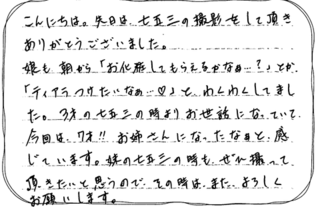 こんにちは。先日は、七五三の撮影をして頂き
ありがとうございました。
娘も朝から「お化粧してもらえるかなぁ…？」とか
「ティアラつけたいなぁ…♡」と、わくわくしてまし
た。3才の七五三の時よりお世話になっていて、
今回は、7才!! お姉さんになったなぁと、感
じています。妹の七五三の時も、ぜひ撮って
頂きたいと思うので、その時は、また、よろしく
お願いします。